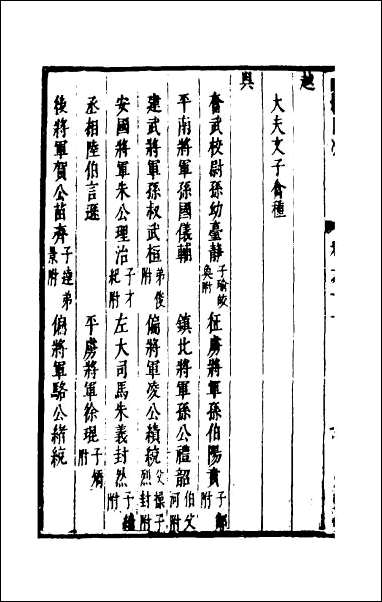 越
大夫文子禽種
吳
奮武校尉孫幼臺靜子瑜皎奐附 征虜將軍孫伯陽賁子鄰附
平南將軍孫國儀輔 鎮北將軍孫公禮韶伯父河附
建武將軍孫叔武桓弟俊附 偏將軍凌公績統父操子烈封附
安國將軍朱公理治子才紀附 左大司馬朱義封然子績附
丞相陸伯言遜 平虜將軍徐琨子炳附
後將軍賀公苗齊子達弟景附 偏將軍駱公緒統